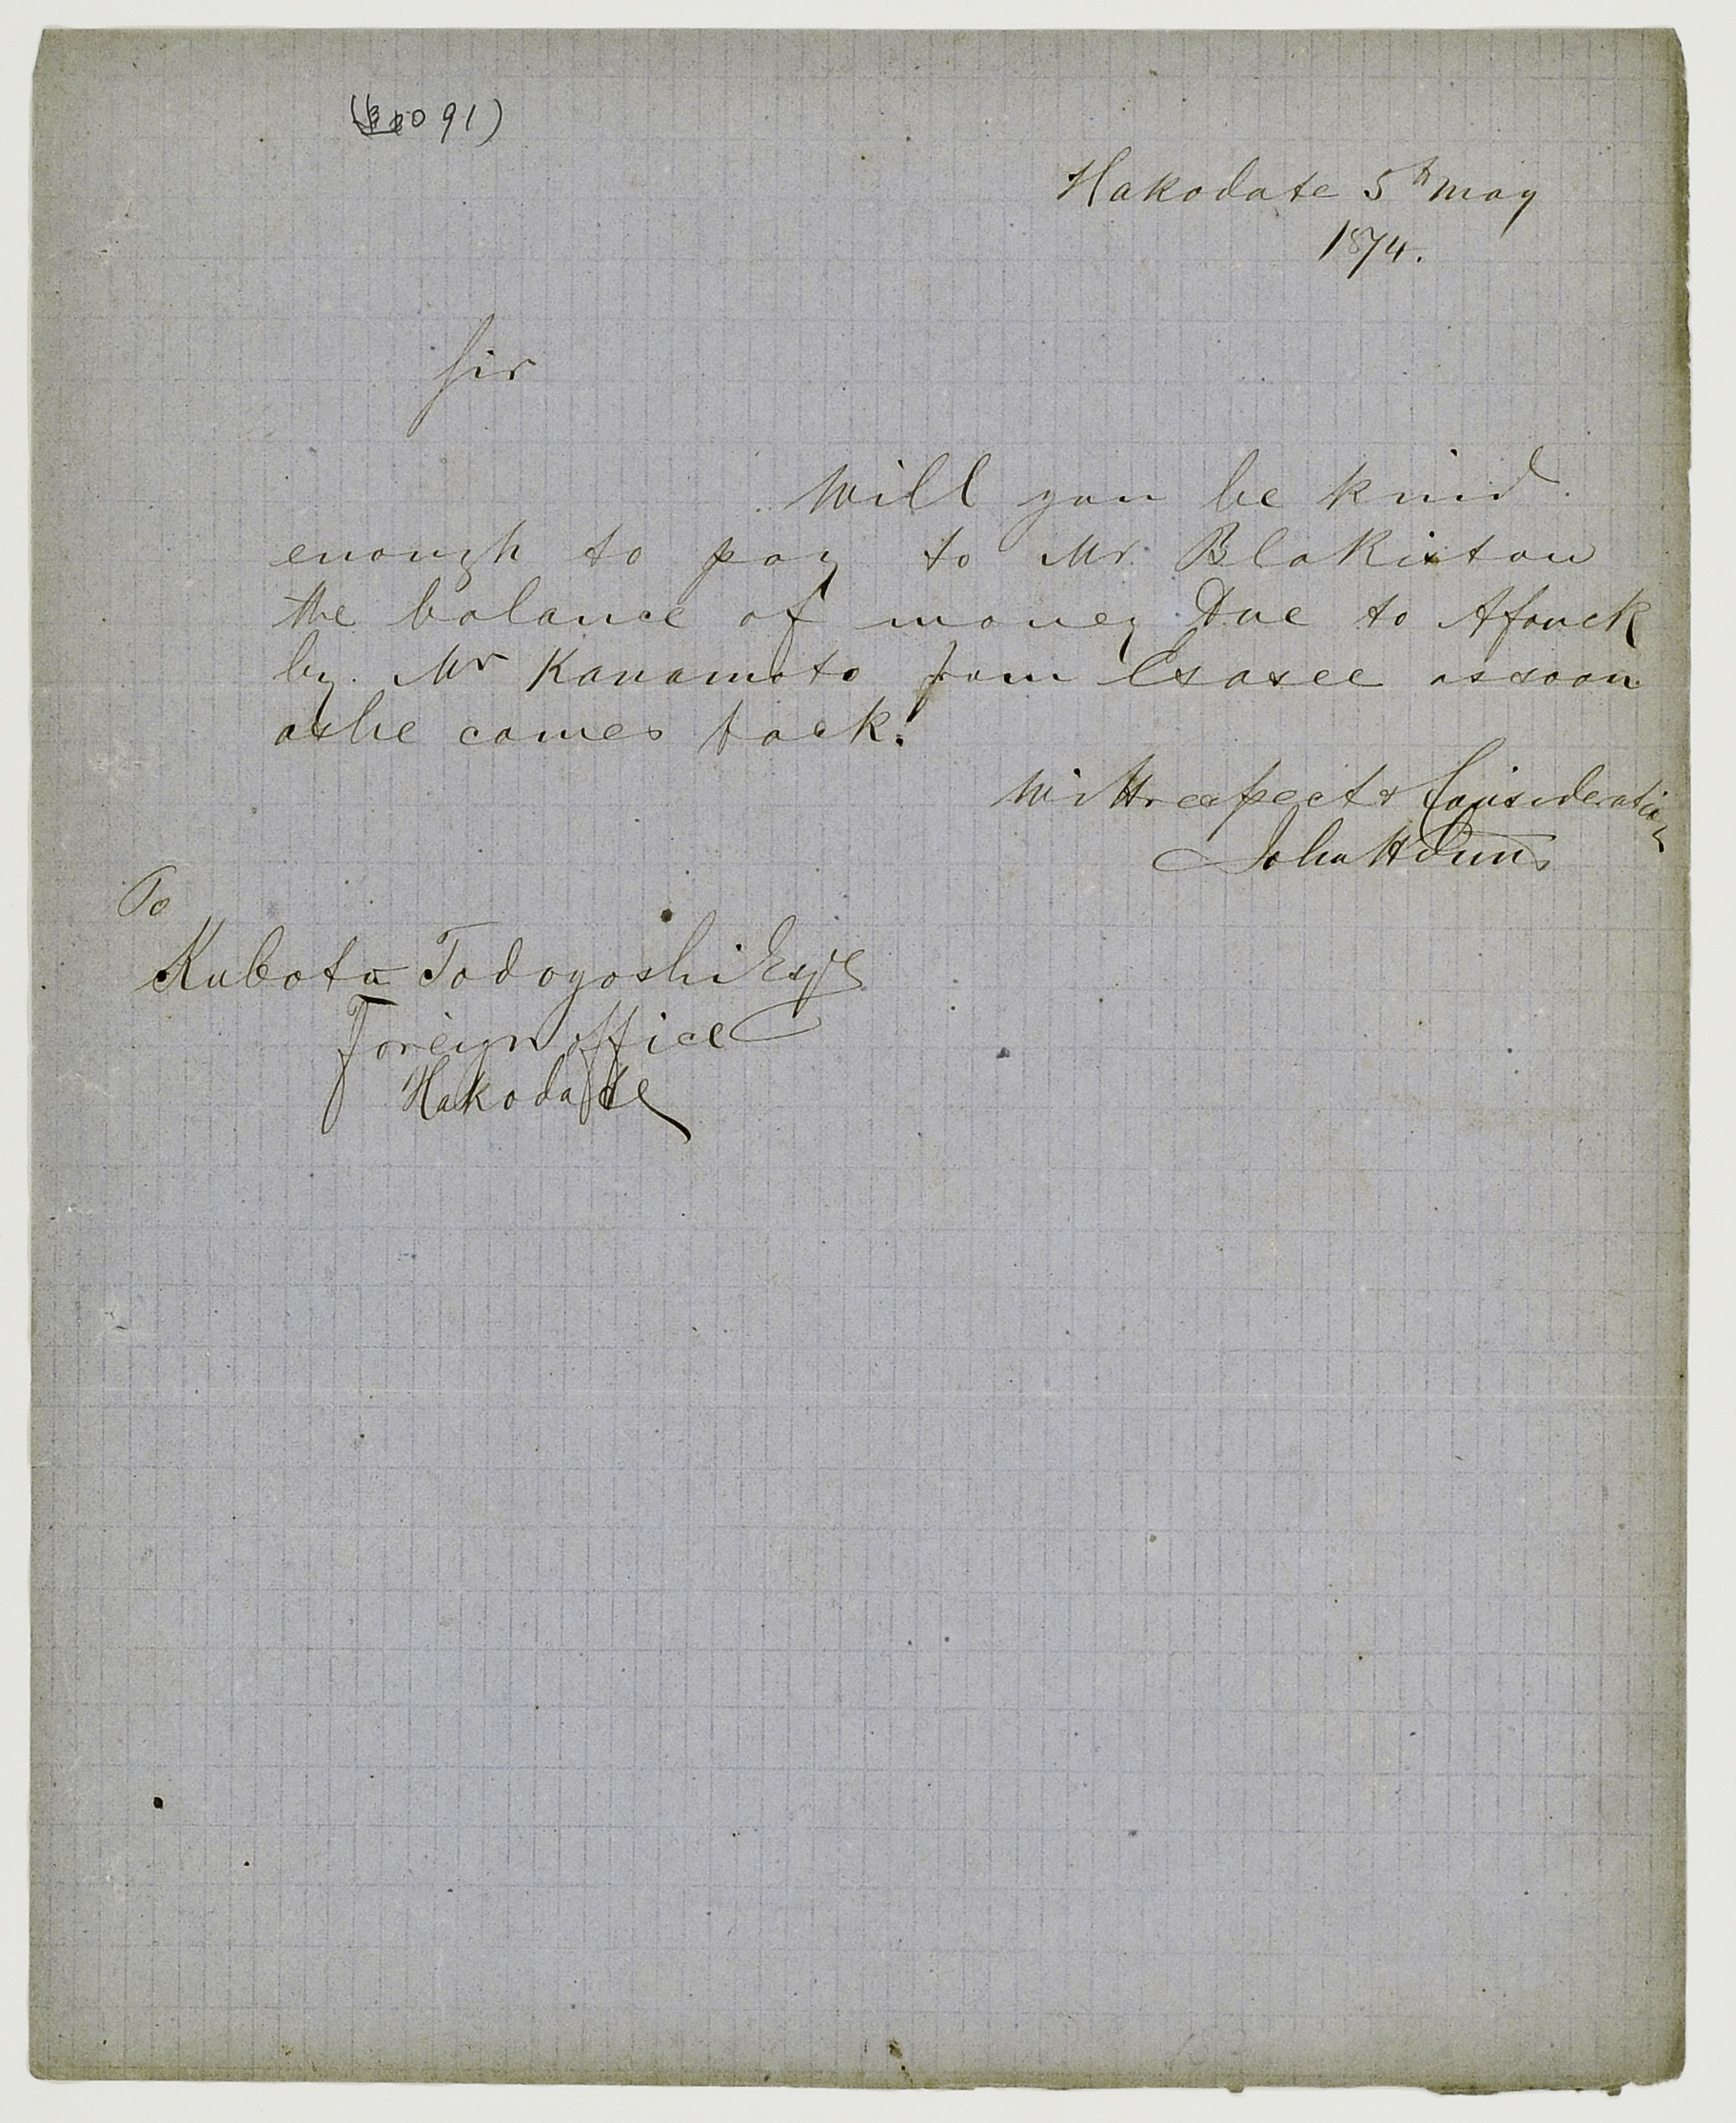 091)
Hakodate 5th May
1874.
Sir
Will you be kind
enough to pay to Mr. Blakiston
the balance of money Due to Afouck
by Mr Kanamoto from Esasee as soon
as he comes back.
With respect & Consideration
John H Duus
To
Kubota Todoyoshi Esqre
Foreign office
Hakodate